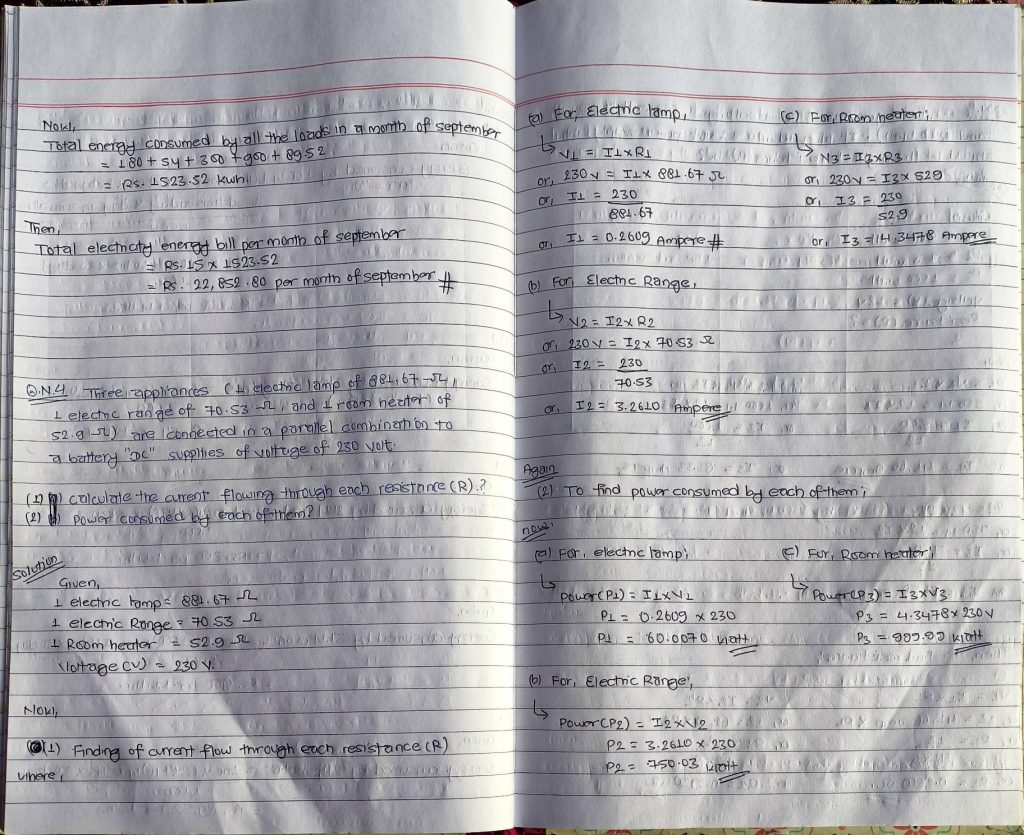 Now,
Total energy consumed by all the loads in a month of september
= 180 + 54 + 300 + 900 + 89.52
= Rs. 1523.52 kwh
Then,
Total electricity energy bill per month of september
= Rs. 15 x 1523.52
= Rs. 22,852.80 per month of september #
Q.N.4 Three appliances (1 electric lamp of 881.67 Ω,
1 electric range of 70.53 Ω, and 1 room heater of
52.9 Ω) are connected in a parallel combination to
a battery "DC" supplies of voltage of 230 volt.
(1) calculate the current flowing through each resistance (R).?
(2) power consumed by each of them?
Solution
Given,
1 electric lamp = 881.67 Ω
1 electric Range = 70.53 Ω
1 Room heater = 52.9 Ω
Voltage (V) = 230 V.
Now,
(1) Finding of current flow through each resistance (R)
where,
(a) For, Electric lamp,
↳ V1 = I1 x R1
or, 230 v = I1 x 881.67 Ω
or, I1 = 230
881.67
or, I1 = 0.2609 Ampere #
(b) For, Electric Range,
↳ V2 = I2 x R2
or, 230 V = I2 x 70.53 Ω
or, I2 = 230
70.53
or, I2 = 3.2610 Ampere
(c) For, Room heater;
↳ V3 = I3 x R3
or, 230 v = I3 x 529
or, I3 = 230
52,9
or, I3 = 4.3478 Ampere
Again
(2) To find power consumed by each of them;
now,
(a) For, electric lamp;
↳ Power (P1) = I1 x V1
P1 = 0.2609 x 230
P1 = 60.0070 Watt
(b) For, Electric Range,
↳ Power (P2) = I2 x V2
P2 = 3.2610 x 230
P2 = 750.03 Watt
(c) For, Room heater;
↳ Power (P3) = I3 x V3
P3 = 4.3478 x 230 v
P3 = 999.99 Watt